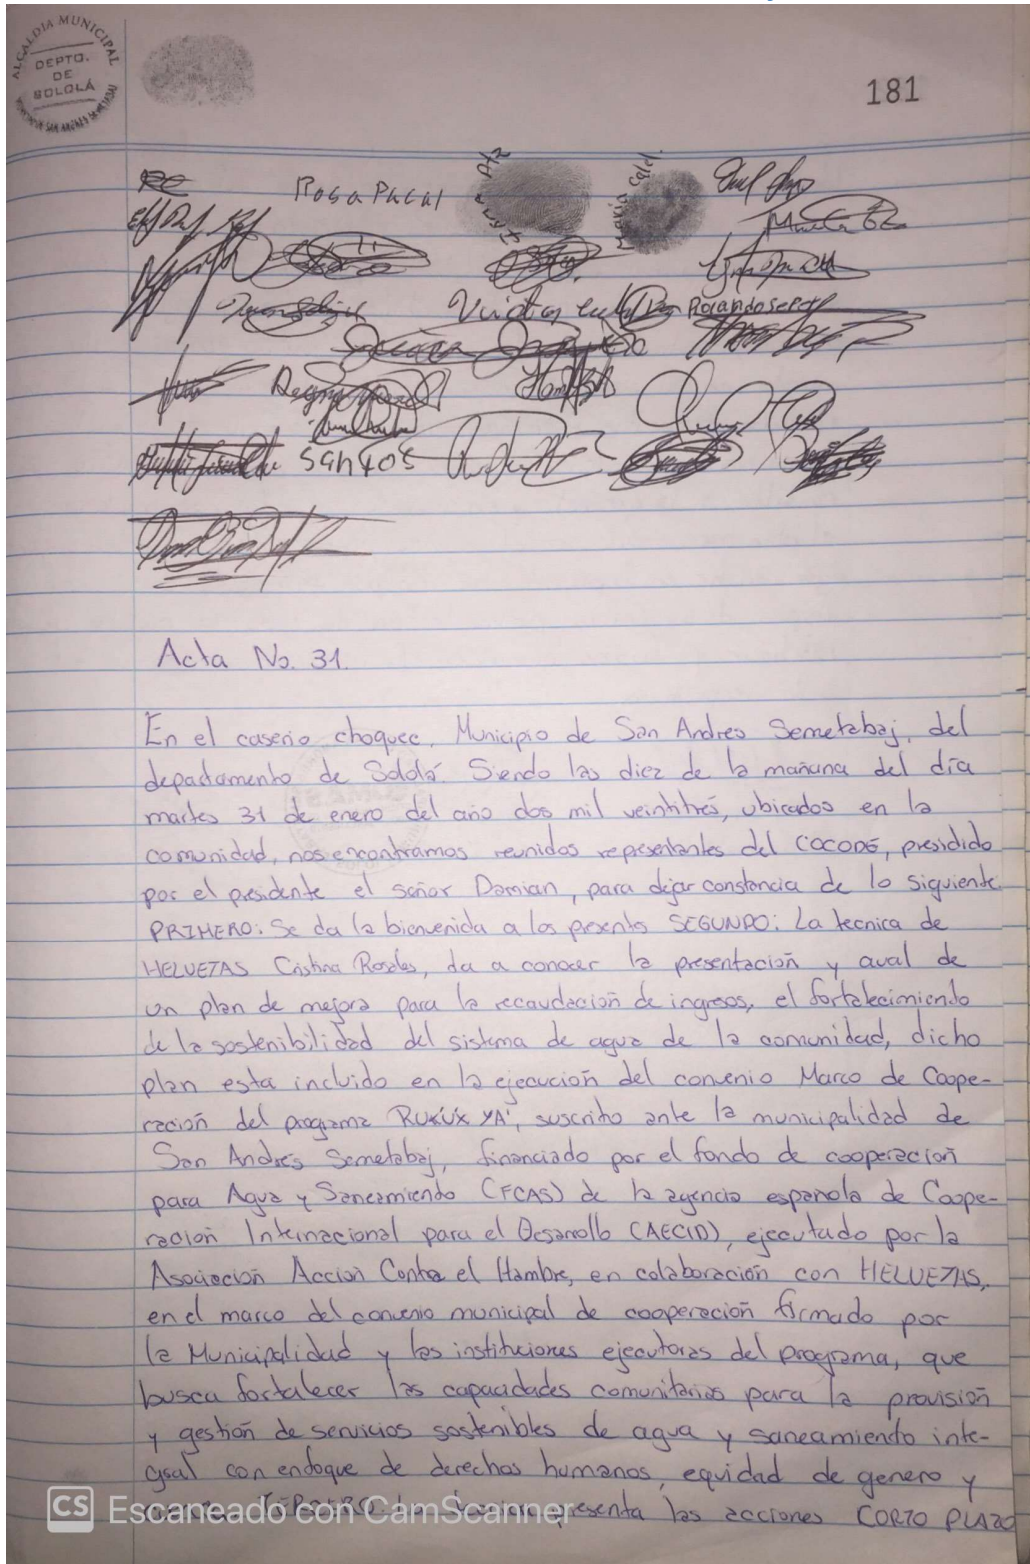 ALCALDIA MUNICIPAL
DEPTO.
DE
SOLOLÁ
181
Rosa Pacal
María Calel
Rolando
Santos
Acta No. 31.
En el caserio choquec, Municipio de San Andres Semetabaj, del
departamento de Sololá. Siendo las diez de la mañana del día
martes 31 de enero del año dos mil veintitrés, ubicados en la
comunidad, nos encontramos reunidos representantes del COCODE, presidido
por el presidente el señor Damian, para dejar constancia de lo siguiente
PRIMERO: Se da la bienvenida a los presents SEGUNDO: La tecnica de
HELVETAS Cristina Rosales, da a conocer la presentación y aval de
un plan de mejora para la recaudación de ingresos, el fortalecimiento
de la sostenibilidad del sistema de agua de la comunidad, dicho
plan esta incluido en la ejecución del convenio Marco de Coope-
ración del programa RUK'U'X YA', suscrito ante la municipalidad de
San Andrés Semetabaj, financiado por el fondo de cooperación
para Agua y Saneamiento (FCAS) de la agencia española de Coope-
ración Internacional para el Desarrollo (AECID), ejecutado por la
Asociación Acción Contra el Hambre, en colaboración con HELVETAS,
en el marco del convenio municipal de cooperación firmado por
la Municipalidad y las instituciones ejecutoras del programa, que
busca fortalecer las capacidades comunitarias para la provisión
y gestión de servicios sostenibles de agua y saneamiento inte-
gral con enfoque de derechos humanos, equidad de genero y
TERCERO presenta las acciones CORTO PLAZO
CS Escaneado con CamScanner